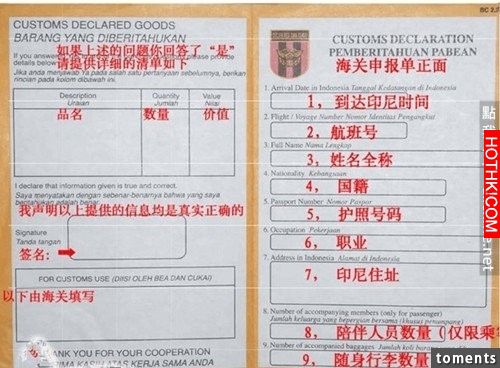 BC 2.2
CUSTOMS DECLARED GOODS
BARANG YANG DIBERITAHUKAN
如果上述的问题你回答了“是”
If you answered
please provide
details below
请提供详细的清单如下
Jika anda menjawab Ya pada salah satu pertanyaan sebelumnya, berikan
rincian pada kolom dibawah ini.
Description Quantity Value
Uraian Jumlah Nilai
品名 数量 价值
I declare that information given is true and correct.
Saya menyatakan dengan sebenar-benarnya bahwa yang saya
beritahukan adalah benar.
我声明以上提供的信息均是真实正确的
Signature
Tanda tangan
签名:
FOR CUSTOMS USE (DIISI OLEH BEA DAN CUKAI)
以下由海关填写
THANK YOU FOR YOUR COOPERATION
TERIMA KASIH ATAS KERJA SAMA ANDA
CUSTOMS DECLARATION
PEMBERITAHUAN PABEAN
海关申报单正面
1. Arrival Date in Indonesia Tanggal Kedatangan di Indonesia
1, 到达印尼时间
2. Flight / Voyage Number Nomor Identitas Pengangkut
2, 航班号
3. Full Name Nama Lengkap
3, 姓名全称
4. Nationality Kebangsaan
4, 国籍
5. Passport Number Nomor Paspor
5, 护照号码
6. Occupation Pekerjaan
6, 职业
7. Address in Indonesia Alamat di Indonesia
7, 印尼住址
8. Number of accompanying members (only for passenger)
Jumlah keluarga yang bepergian bersama (khusus penumpang)
8, 陪伴人员数量(仅限乘
9. Number of accompanied baggages Jumlah koli
9, 随身行李数量
HOTHK.COM
toments